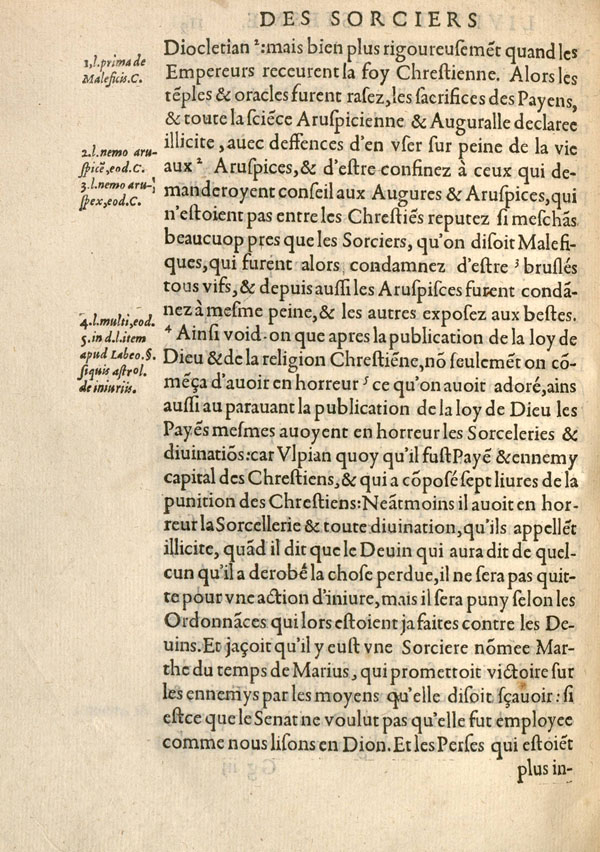 DES SORCIERS
1,l.prima de
Maleficis.C.
2.l.nemo aru-
spicē,eod.C.
3.l.nemo aru-
spex,eod.C.
4.l.multi,eod.
5.in d.l.item
apud Labeo.§.
siquis astrol.
de iniuriis.
Diocletian ²:mais bien plus rigoureusemēt quand les
Empereurs receurent la foy Chrestienne. Alors les
tēples & oracles furent rasez,les sacrifices des Payens,
& toute la sciēce Aruspicienne & Auguralle declaree
illicite, auec deffences d'en vser sur peine de la vie
aux ² Aruspices,& d'estre confinez à ceux qui de-
manderoyent conseil aux Augures & Aruspices,qui
n'estoient pas entre les Chrestiēs reputez si meschās
beaucuop pres que les Sorciers, qu'on disoit Malefi-
ques,qui furent alors condamnez d'estre ³ bruslés
tous vifs,& depuis aussi les Aruspisces furent condā-
nez à mesme peine,& les autres exposez aux bestes.
⁴ Ainsi void-on que apres la publication de la loy de
Dieu & de la religion Chrestiēne,nō seulemēt on cō-
mēça d'auoir en horreur ⁵ ce qu'on auoit adoré,ains
aussi au parauant la publication de la loy de Dieu les
Payēs mesmes auoyent en horreur les Sorceleries &
diuinatiōs:car Vlpian quoy qu'il fust Payē & ennemy
capital des Chrestiens,& qui a cōposé sept liures de la
punition des Chrestiens:Neātmoins il auoit en hor-
reur la Sorcellerie & toute diuination,qu'ils appellēt
illicite, quād il dit que le Deuin qui aura dit de quel-
cun qu'il a derobé la chose perdue,il ne sera pas quit-
te pour vne action d'iniure,mais il sera puny selon les
Ordonnāces qui lors estoient ja faites contre les De-
uins.Et jaçoit qu'il y eust vne Sorciere nōmee Mar-
the du temps de Marius, qui promettoit victoire sur
les ennemys par les moyens qu'elle disoit sçauoir : si
estce que le Senat ne voulut pas qu'elle fut employee
comme nous lisons en Dion. Et les Perses qui estoiēt
plus in-